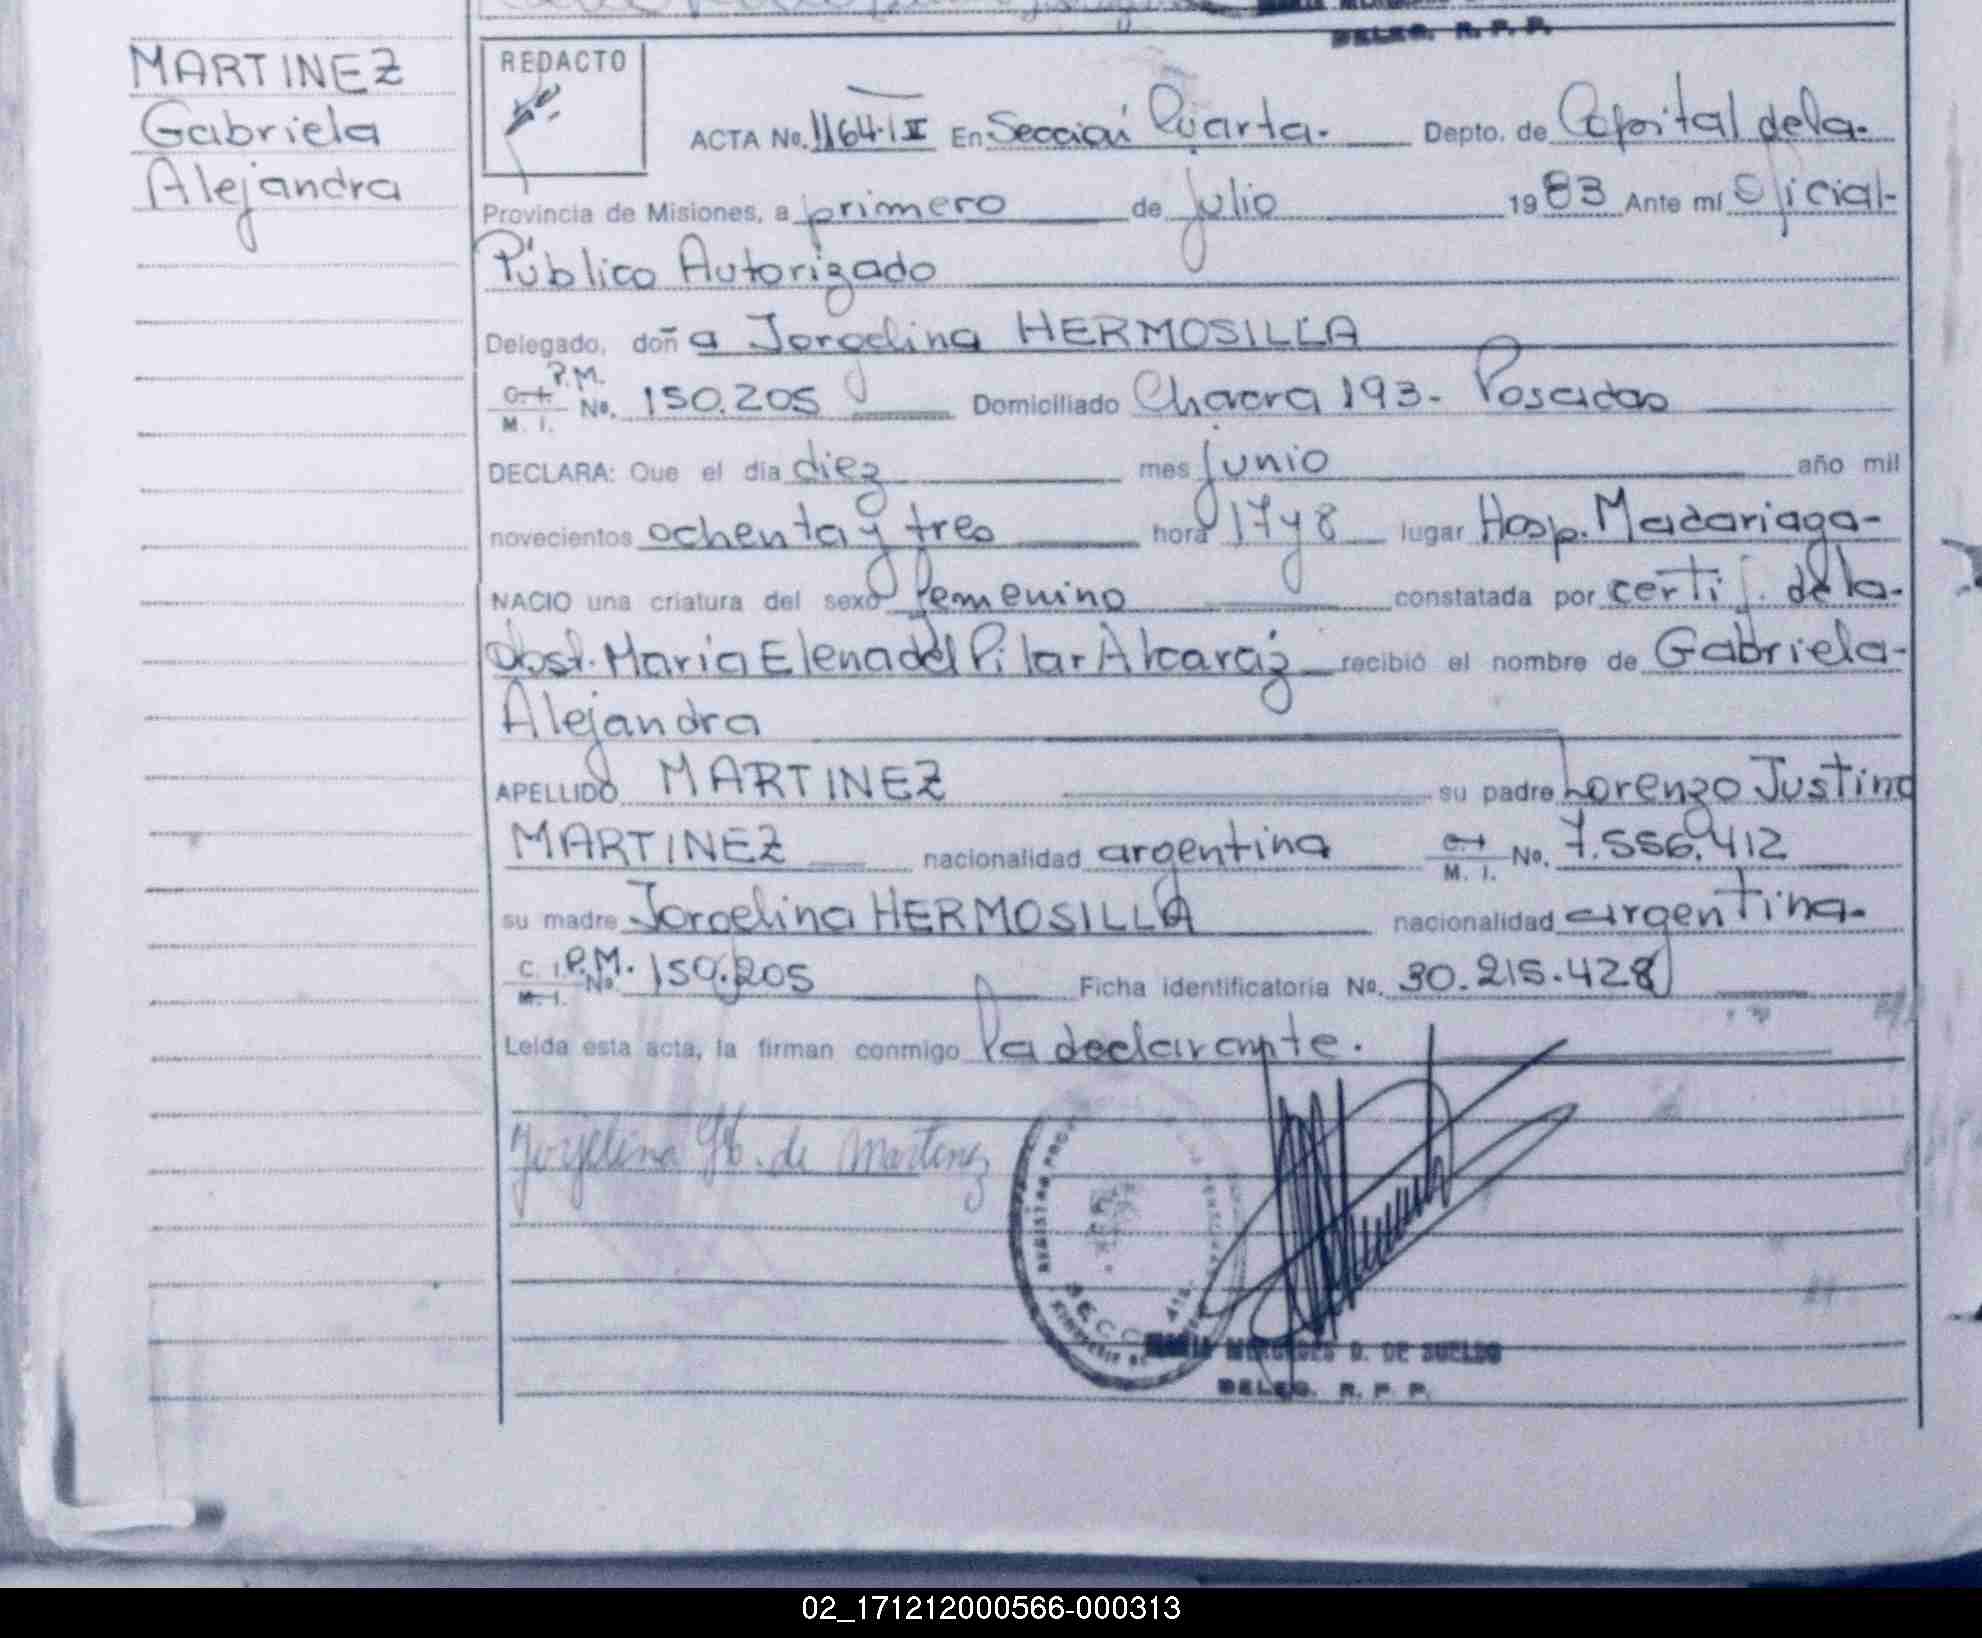 DELEG. R. P. P.
MARTINEZ
Gabriela
Alejandra
REDACTO
ACTA No. 1164·I II En Sección Cuarta. Depto. de Capital de la-
Provincia de Misiones, a primero de julio 1983 Ante mí Oficial-
Público Autorizado
Delegado, doña Jorgelina HERMOSILLA
P.M.
C. I.
M. I. No. 150.205 Domiciliado Chacra 193- Posadas
DECLARA: Que el día diez mes junio año mil
novecientos ochenta y tres hora 17 y 8 lugar Hosp. Madariaga-
NACIO una criatura del sexo femenino constatada por certif. de la-
Obst. María Elena del Pilar Alcaráz recibió el nombre de Gabriela-
Alejandra
APELLIDO MARTINEZ su padre Lorenzo Justino
MARTINEZ nacionalidad argentina C. I. M. I. No. 7.556.412
su madre Jorgelina HERMOSILLA nacionalidad argentina-
C. I. M. I. P.M. No. 150.205 Ficha identificatoria No. 30.215.428
Leída esta acta, la firman conmigo la declarante.
Jorgelina H. de Martinez
REGISTRO PROV.
SECC. 4ta.
MARIA MERCEDES D. DE SUELDO
DELEG. R. P. P.
02_171212000566-000313